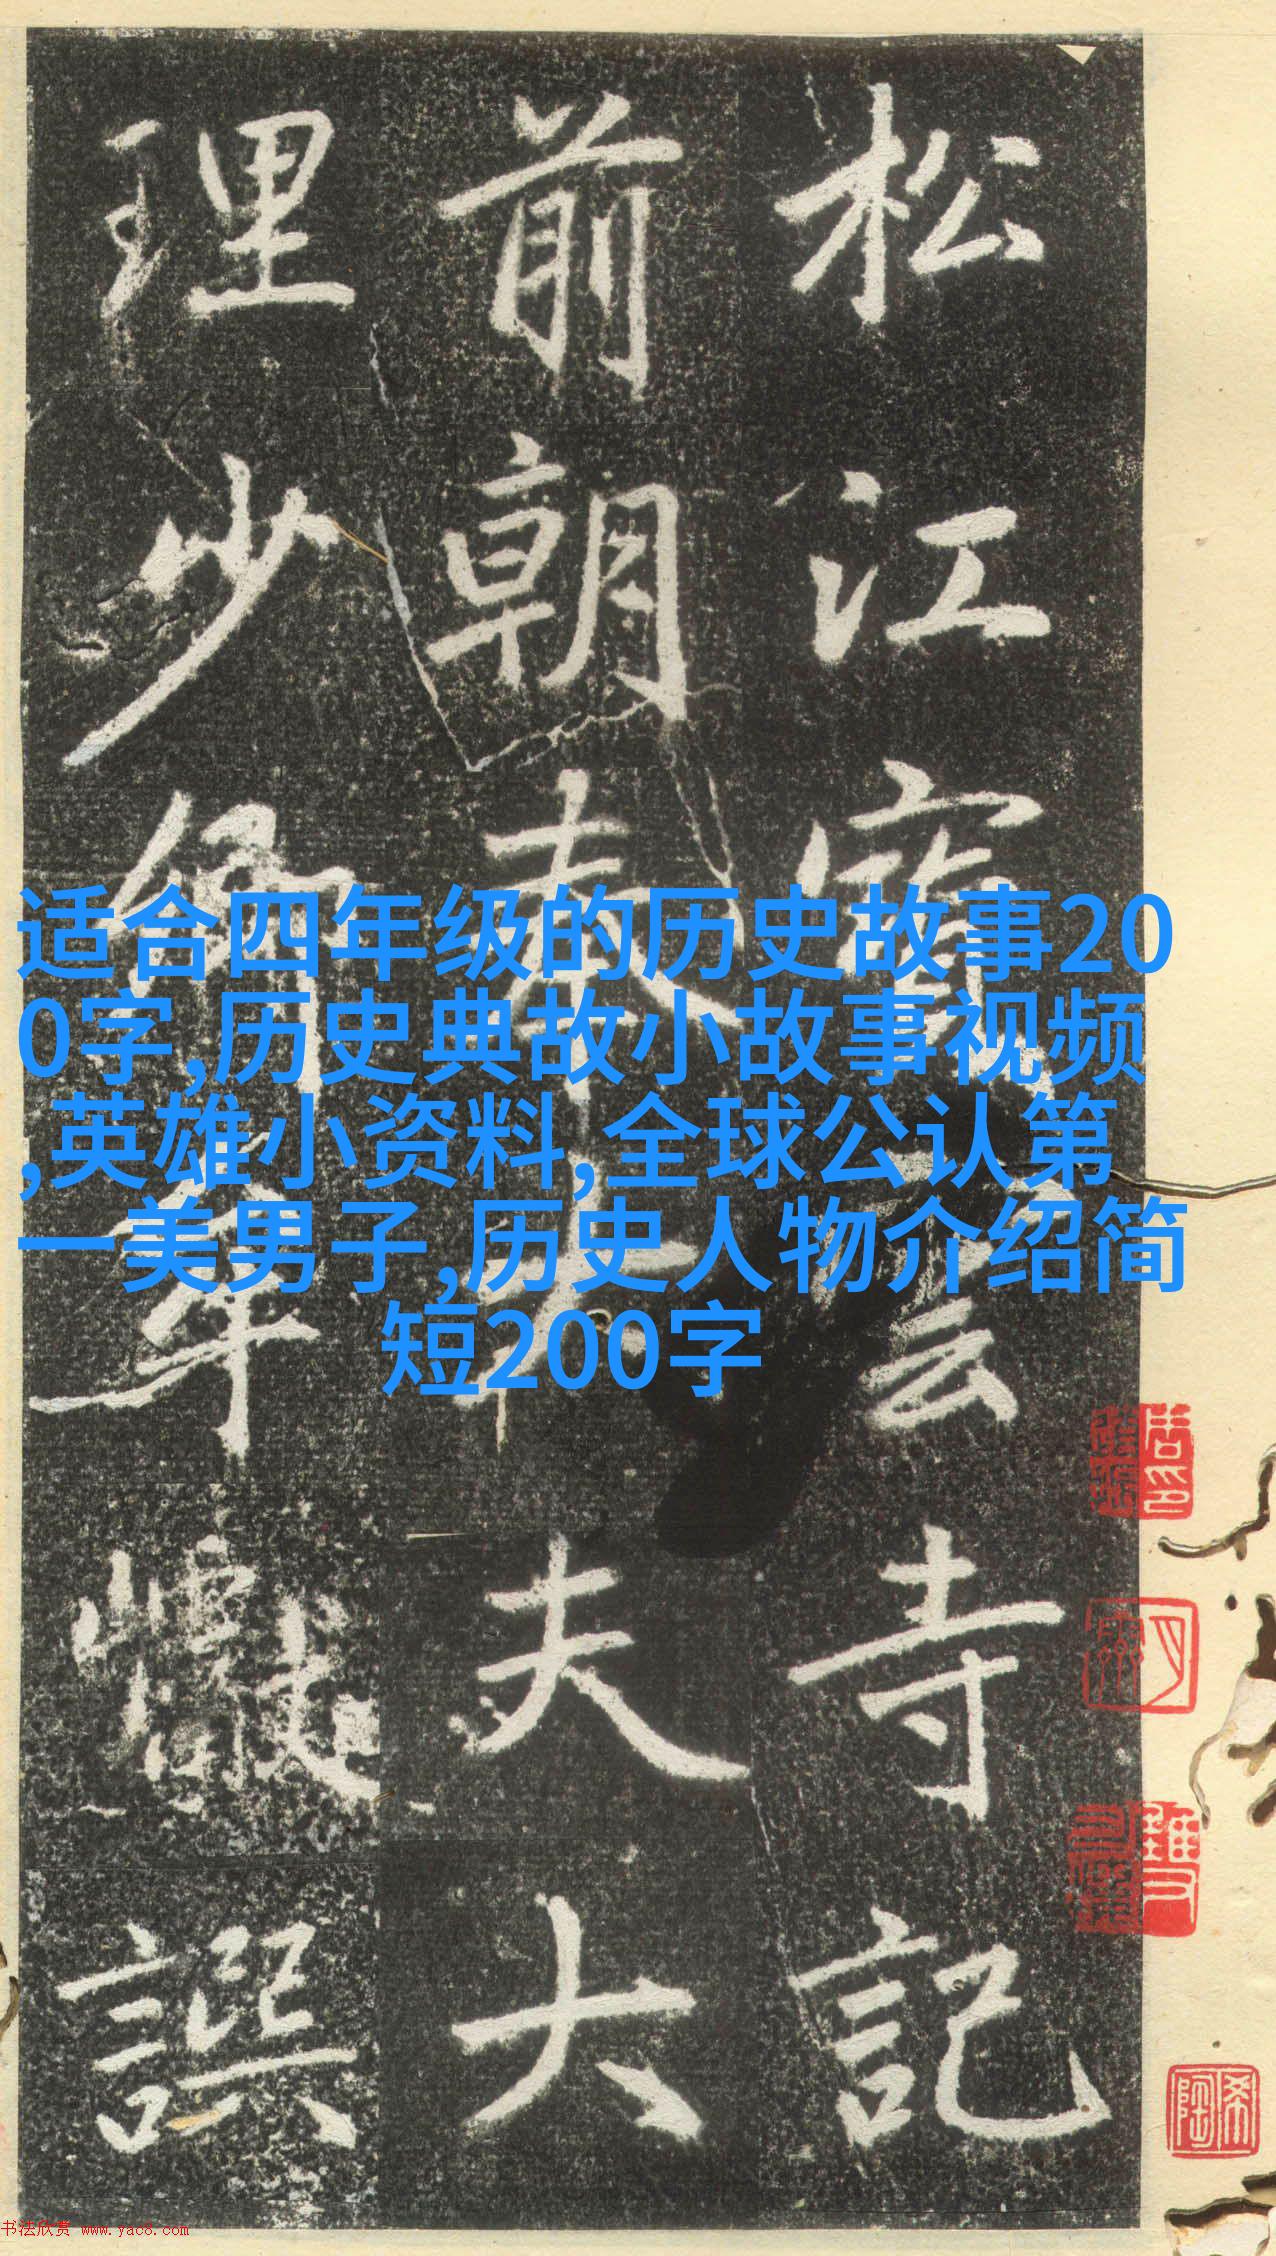 松江寶雲寺記
前朝奉大夫大
理少卿牟巘譔
适合四年级的历史故事20
0字,历史典故小故事视频
,英雄小资料,全球公认第
一美男子,历史人物介绍简
短200字
书法欣赏 www.yac8.com